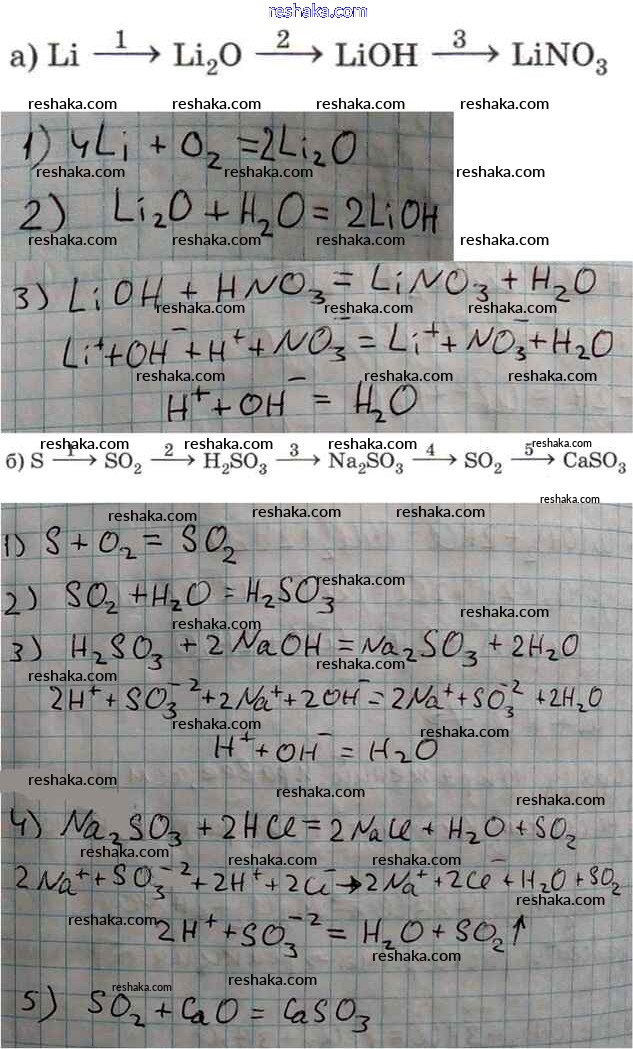 reshaka.com
а) Li —1→ Li₂O —2→ LiOH —3→ LiNO₃
reshaka.com reshaka.com reshaka.com
1) 4Li + O₂ = 2Li₂O
reshaka.com reshaka.com reshaka.com
2) Li₂O + H₂O = 2LiOH
reshaka.com reshaka.com reshaka.com
3) LiOH + HNO₃ = LiNO₃ + H₂O
reshaka.com reshaka.com
Li⁺ + OH⁻ + H⁺ + NO₃⁻ = Li⁺ + NO₃⁻ + H₂O
reshaka.com reshaka.com reshaka.com
H⁺ + OH⁻ = H₂O
reshaka.com reshaka.com reshaka.com
б) S —1→ SO₂ —2→ H₂SO₃ —3→ Na₂SO₃ —4→ SO₂ —5→ CaSO₃
reshaka.com
reshaka.com reshaka.com reshaka.com
1) S + O₂ = SO₂
reshaka.com
2) SO₂ + H₂O = H₂SO₃
reshaka.com
3) H₂SO₃ + 2NaOH = Na₂SO₃ + 2H₂O
reshaka.com
reshaka.com
2H⁺ + SO₃⁻² + 2Na⁺ + 2OH⁻ = 2Na⁺ + SO₃⁻² + 2H₂O
reshaka.com
H⁺ + OH⁻ = H₂O
reshaka.com
reshaka.com
4) Na₂SO₃ + 2HCl = 2NaCl + H₂O + SO₂
reshaka.com reshaka.com
2Na⁺ + SO₃⁻² + 2H⁺ + 2Cl⁻ → 2Na⁺ + 2Cl⁻ + H₂O + SO₂
reshaka.com
reshaka.com
2H⁺ + SO₃⁻² = H₂O + SO₂↑
reshaka.com
reshaka.com reshaka.com
5) SO₂ + CaO = CaSO₃